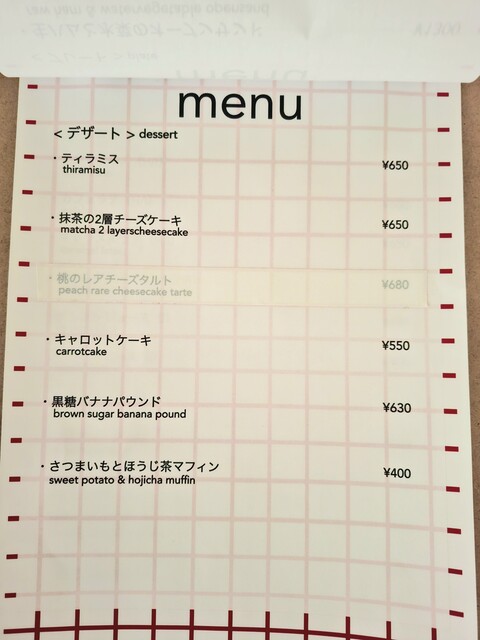 menu
< デザート > dessert
・ティラミス ¥650
thiramisu
・抹茶の2層チーズケーキ ¥650
matcha 2 layerscheesecake
・桃のレアチーズタルト ¥680
peach rare cheesecake tarte
・キャロットケーキ ¥550
carrotcake
・黒糖バナナパウンド ¥630
brown sugar banana pound
・さつまいもとほうじ茶マフィン ¥400
sweet potato & hojicha muffin